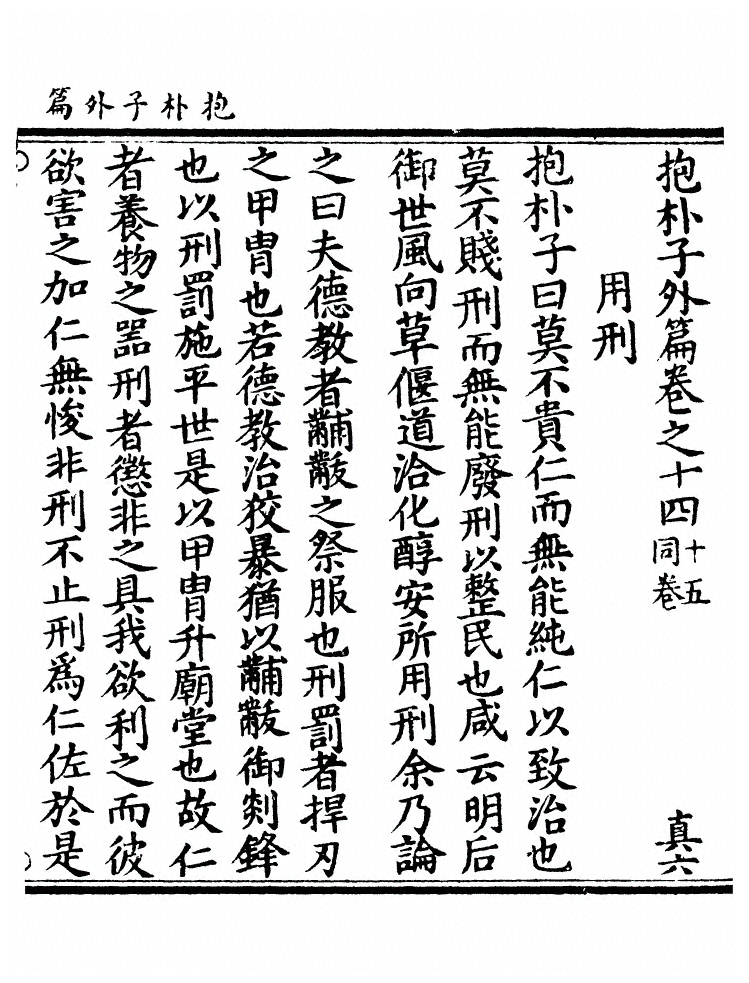 抱朴子外篇
抱朴子外篇卷之十四十五同卷 真六
用刑
抱朴子曰莫不貴仁而無能純仁以致治也
莫不賤刑而無能廢刑以整民也咸云明后
御世風向草偃道洽化醇安所用刑余乃論
之曰夫德教者黼黻之祭服也刑罰者捍刃
之甲胄也若德教治狡暴猶以黼黻御剡鋒
也以刑罰施平世是以甲胄升廟堂也故仁
者養物之器刑者懲非之具我欲利之而彼
欲害之加仁無悛非刑不止刑為仁佐於是